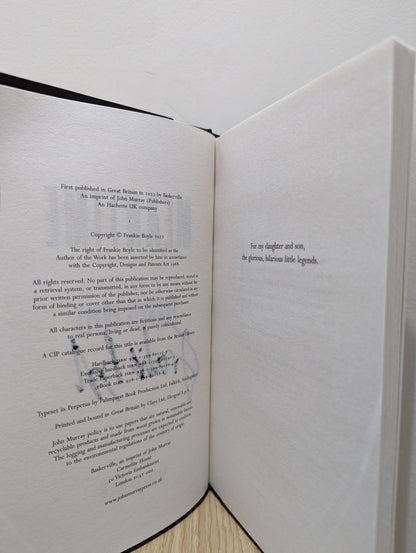 First published in Great Britain in 2022 by Baskerville
An imprint of John Murray (Publishers)
An Hachette UK company
1
Copyright © Frankie Boyle 2022
The right of Frankie Boyle to be identified as the
Author of the Work has been asserted by him in accordance
with the Copyright, Designs and Patents Act 1988.
All rights reserved. No part of this publication may be reproduced, stored in
a retrieval system, or transmitted, in any form or by any means without the
prior written permission of the publisher, nor be otherwise circulated in any
form of binding or cover other than that in which it is published and without
a similar condition being imposed on the subsequent purchaser.
All characters in this publication are fictitious and any resemblance
to real persons, living or dead, is purely coincidental.
A CIP catalogue record for this title is available from the British Library
Hardback ISBN
ISBN
Trade Paperback ISBN
eBook ISBN
Typeset in Perpetua by Palimpsest Book Production Ltd, Falkirk, Stirlingshire
Printed and bound in Great Britain by Clays Ltd, Elcograf S.p.A.
John Murray policy is to use papers that are natural, renewable and
recyclable products and made from wood grown in sustainable forests.
The logging and manufacturing processes are expected to conform
to the environmental regulations of the country of origin.
Baskerville, an imprint of John Murray
Carmelite House
50 Victoria Embankment
London EC4Y 0DZ
www.johnmurraypress.co.uk
For my daughter and son,
the glorious, hilarious little legends.